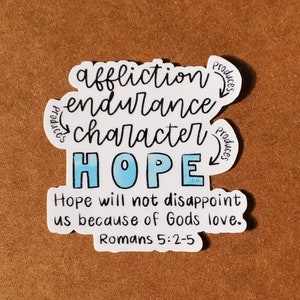 affliction
produces
endurance
produces
character
produces
HOPE
Hope will not disappoint
us because of Gods love.
Romans 5:2-5